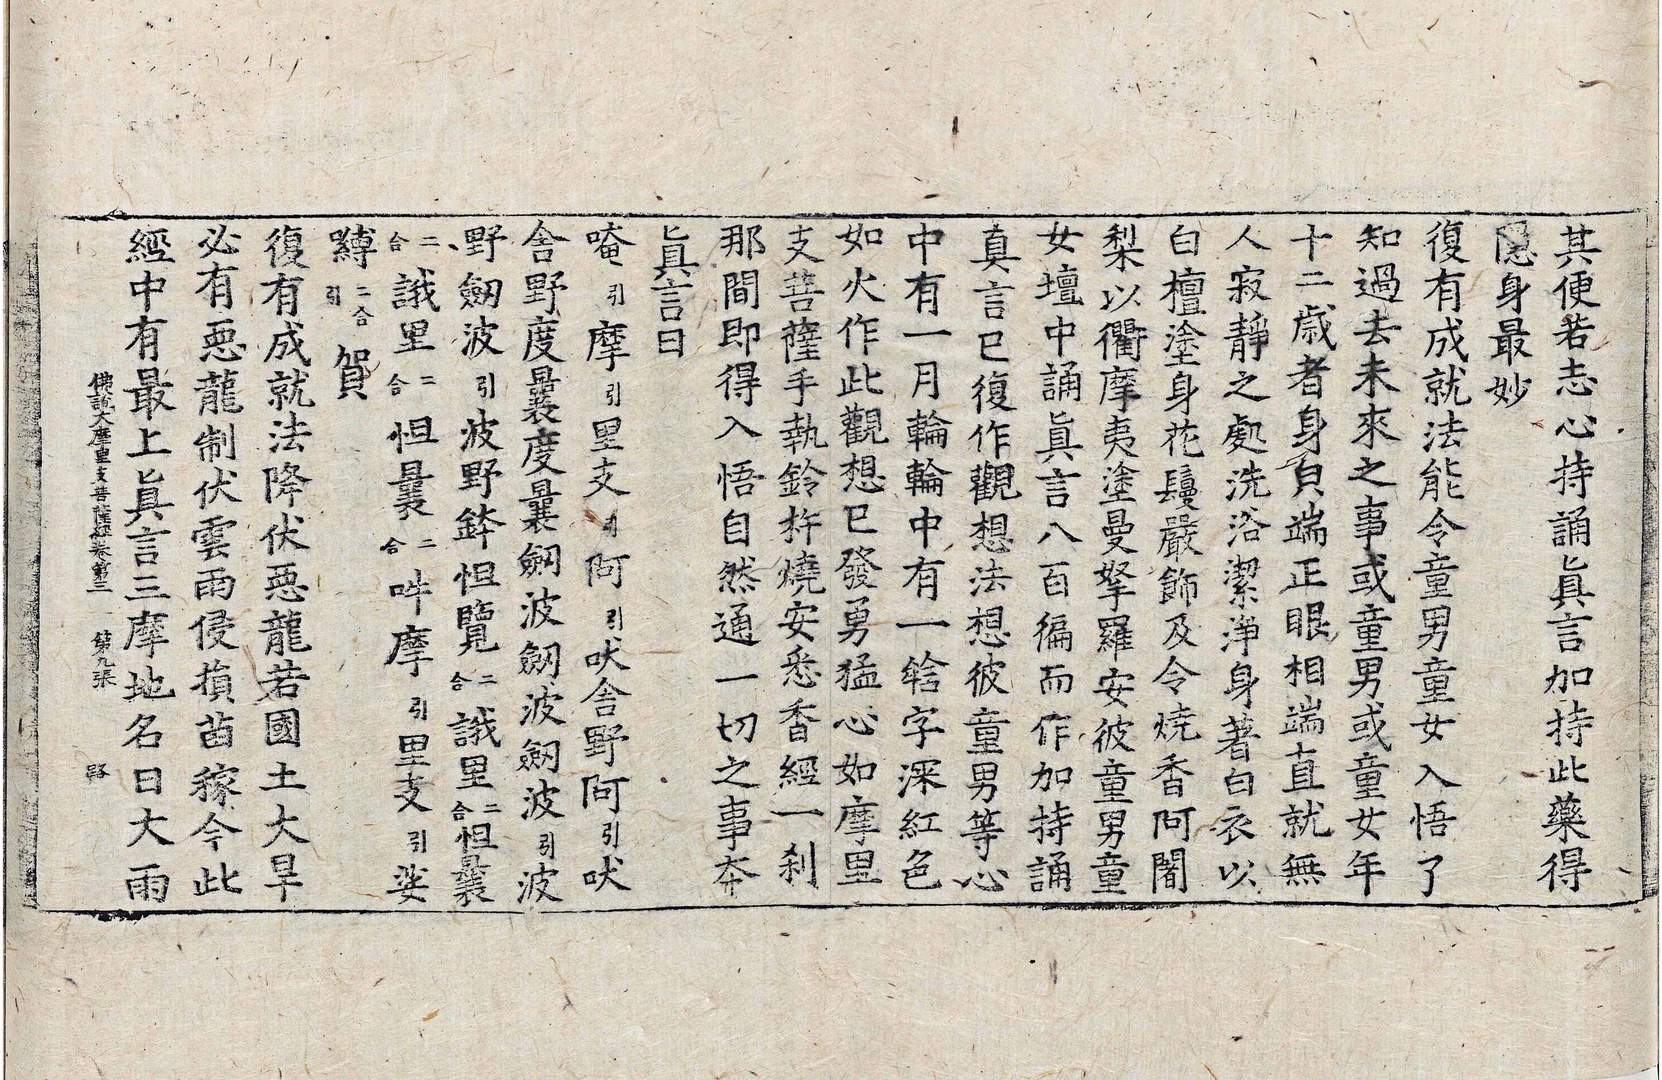 其便若志心持誦眞言加持此藥得
隱身最妙
復有成就法能令童男童女入悟了
知過去未來之事或童男或童女年
十二歲者身皃端正眼相端直就無
人寂靜之處洗浴潔淨身著白衣以
白檀塗身花鬘嚴飾及令燒香阿闍
梨以衢摩夷塗曼拏羅安彼童男童
女壇中誦眞言八百徧而作加持誦
眞言已復作觀想法想彼童男等心
中有一月輪輪中有一唅字深紅色
如火作此觀想已發勇猛心如摩里
支菩薩手執鈴杵燒安悉香經一刹
那間即得入悟自然通一切之事夲
眞言曰
唵引摩引里支引阿引吠舍野阿引吠
舍野度曩度曩劔波劔波劔波引波
野劔波引波野鉢怛覽二合誐里二合怛曩
二合誐里二合怛曩二合吽摩引里支引娑
嚩二合引賀
復有成就法降伏惡龍若國土大旱
必有惡龍制伏雲雨侵損苗稼令此
經中有最上眞言三摩地名曰大雨
佛說大摩里支菩薩經卷第三　第九張　路